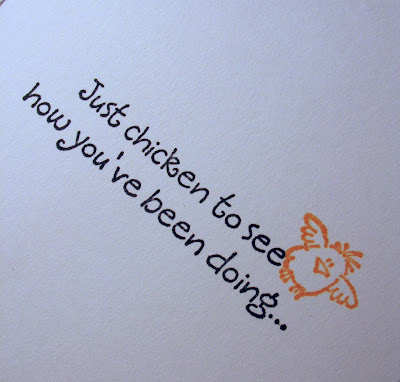 Just chicken to see
how you've been doing...